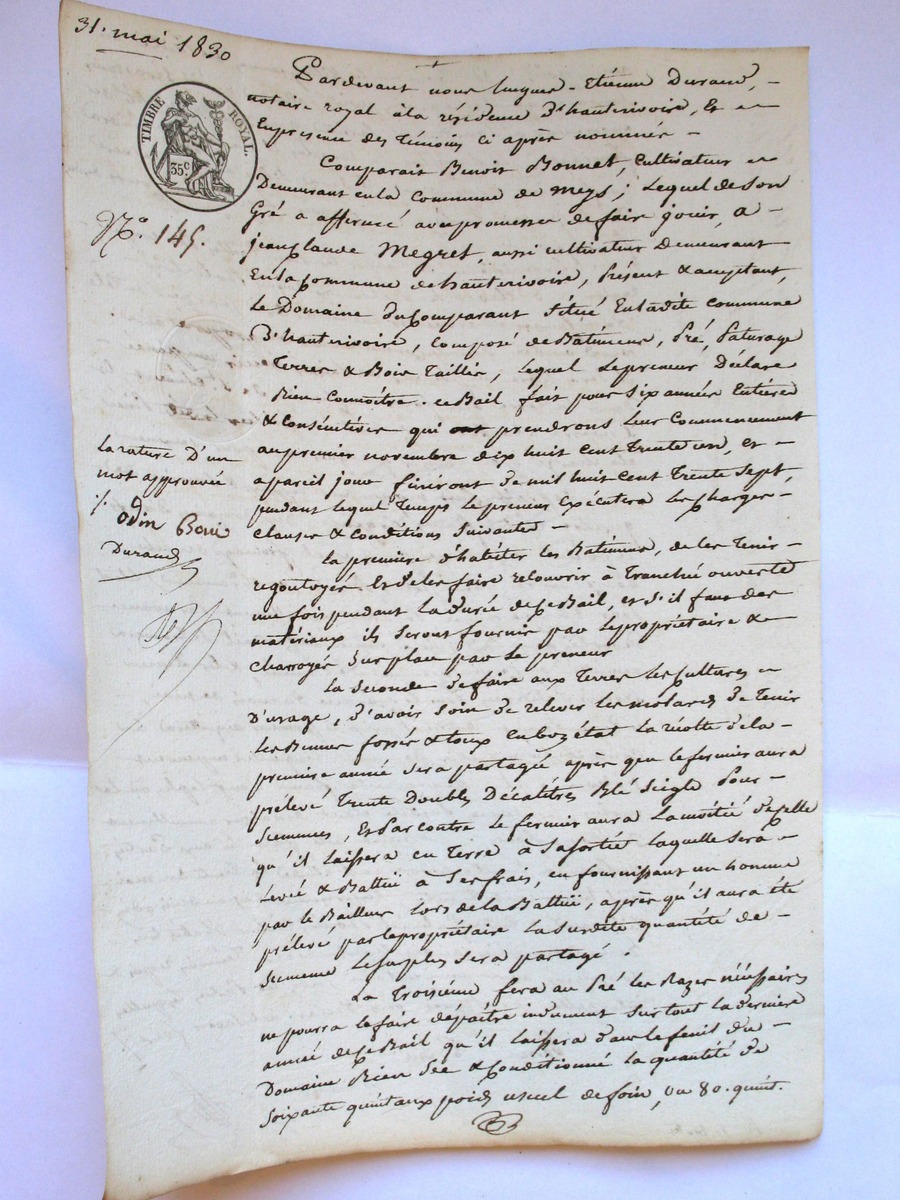 31. mai 1830
TIMBRE ROYAL.
35c
No. 145.
Pardevant nous hugues-Etienne Durand,
notaire royal à la résidence D'hauterivoire, Et
En présence des témoins ci après nommés
Comparait Benoit Bonnet, cultivateur
Demeurant en la commune de Meys; Lequel de son
Gré a affermé avec promesse de faire jouir, a
jean claude Megret, aussi cultivateur demeurant
En la Commune de hauterivoire, Présent & acceptant,
Le Domaine du Comparant Situé En ladite commune
D'hauterivoire, Composé de Batimens, Pré, Paturage
Terres & Bois Taillis, Lequel Le preneur Déclare
Bien Connoitre. ce Bail fait pour six années Entières
& Consécutives qui prendrons leur Commencement
au premier novembre dix huit cent trente un, et
a pareil jour finiront de mil huit cent Trente Sept,
pendant lequel Temps Le preneur Exécutera Les charges
clauses & conditions suivantes
la rature D'un
mot approuvée
odin Bonnet
Durand
La première d'habiter les Batimens, de les Tenir
regoutoyés Et de les faire recouvrir à Tranché ouverte
une fois pendant la durée de ce Bail, et s'il faut des
matériaux ils seront fournis par le propriétaire &
charroyés Sur place par Le preneur
La Seconde de faire aux Terres les Cultures
D'usage, d'avoir soin de relever les molards de Tenir
les fossés & en bon état La récolte de la
première année sera partagée après que le fermier aura
prélevé Trente Doubles Décalitres Blé Seigle Pour
Semences, Et Par contre Le fermier aura La moitié de celle
qu'il laissera en Terre à Sa sortie laquelle Sera
Levée & Battue à Ses frais, en fournissant un homme
par le Bailleur lors de la Battue, après qu'il aura été
prélevé par le propriétaire La Susdite quantité de
Semence Le surplus sera partagé.
La Troisième fera au Pré les Razes nécessaires
ne pourra le faire dépaitre induement Surtout la dernière
année de ce Bail qu'il laissera dans le fenil du
Domaine Bien Sec & Conditionné la quantité de
Soixante quintaux poids usuel de foin, ou 80. quint.